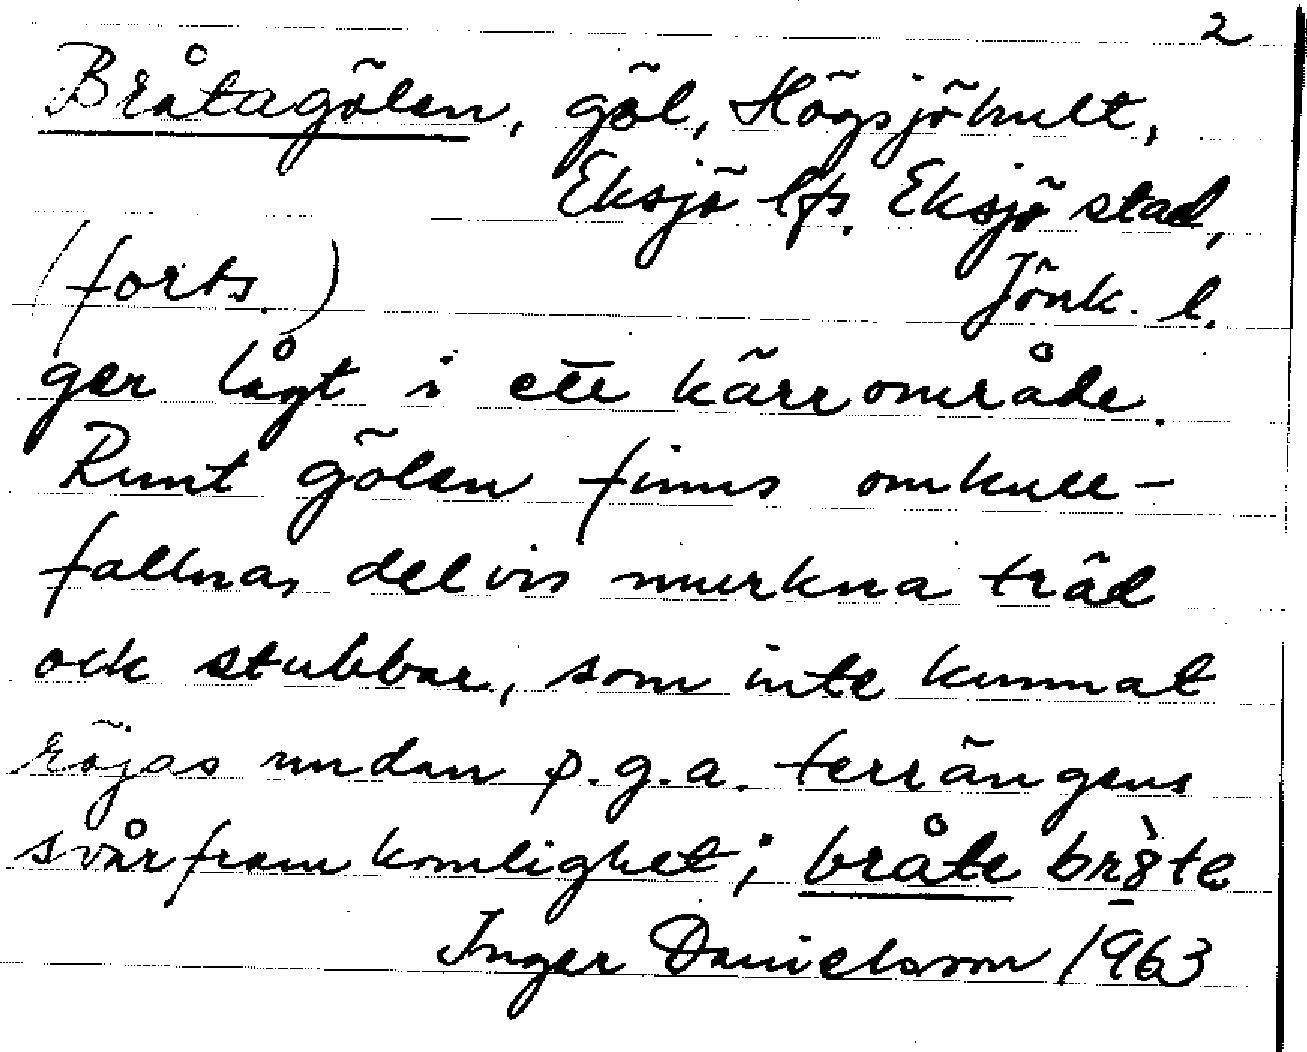 2
Bråtagölen, göl, Högsjöhult,
Eksjö lfs. Eksjö stad,
(forts.) Jönk. l.
ger lågt i ett kärrområde.
Runt gölen finns omkull-
fallna, delvis murkna träd
och stubbar, som inte kunnat
röjas undan p.g.a. terrängens
svårframkomlighet; bråte
Inger Danielsson 1963